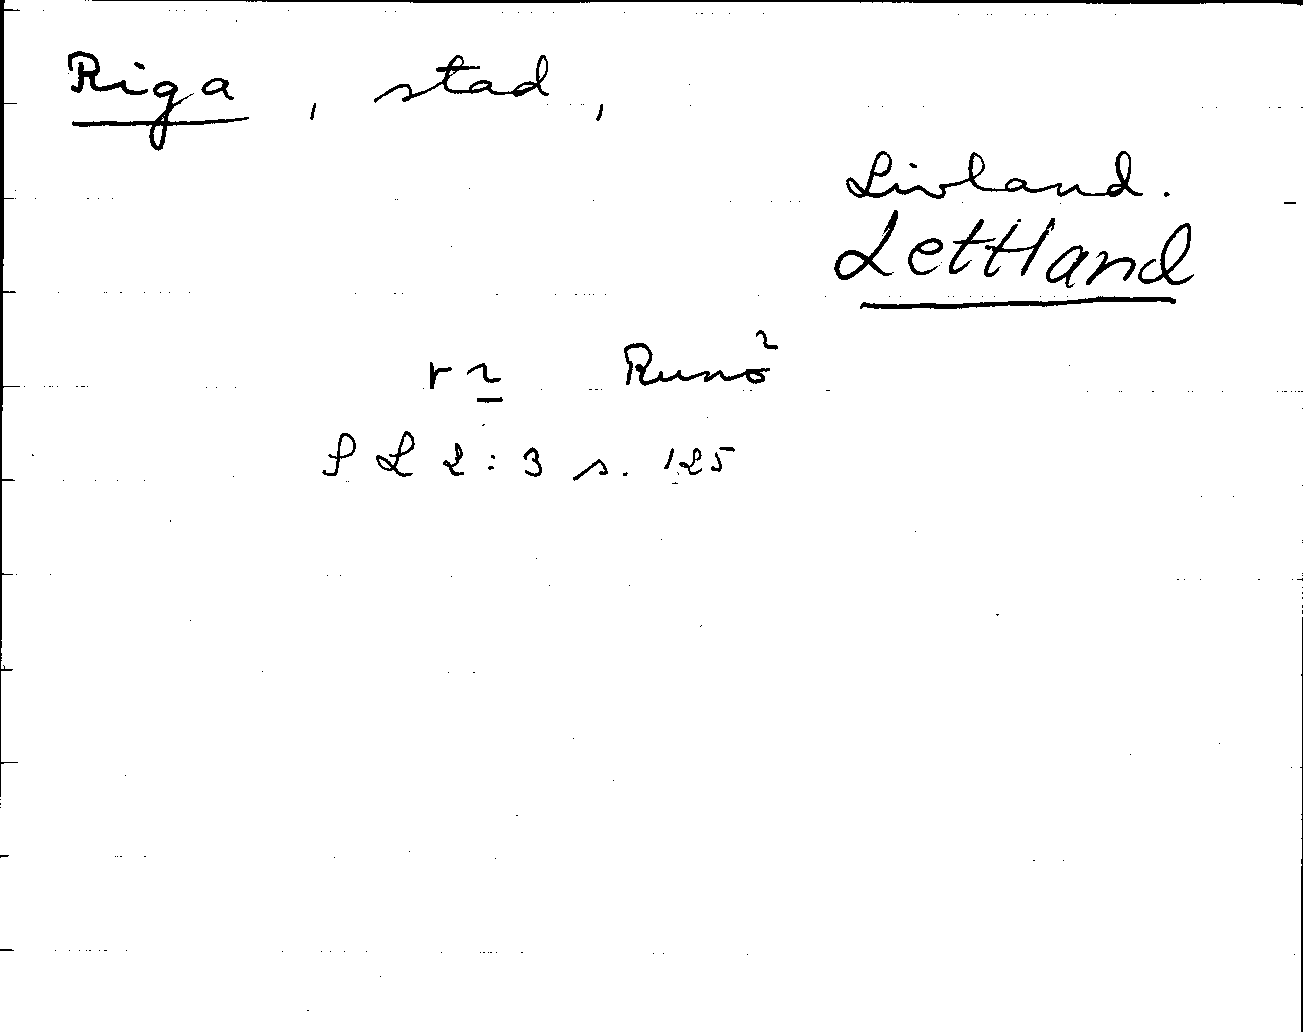 Riga, stad,
Livland.
Lettland
r~ Runö~
S L 2:3 s. 125